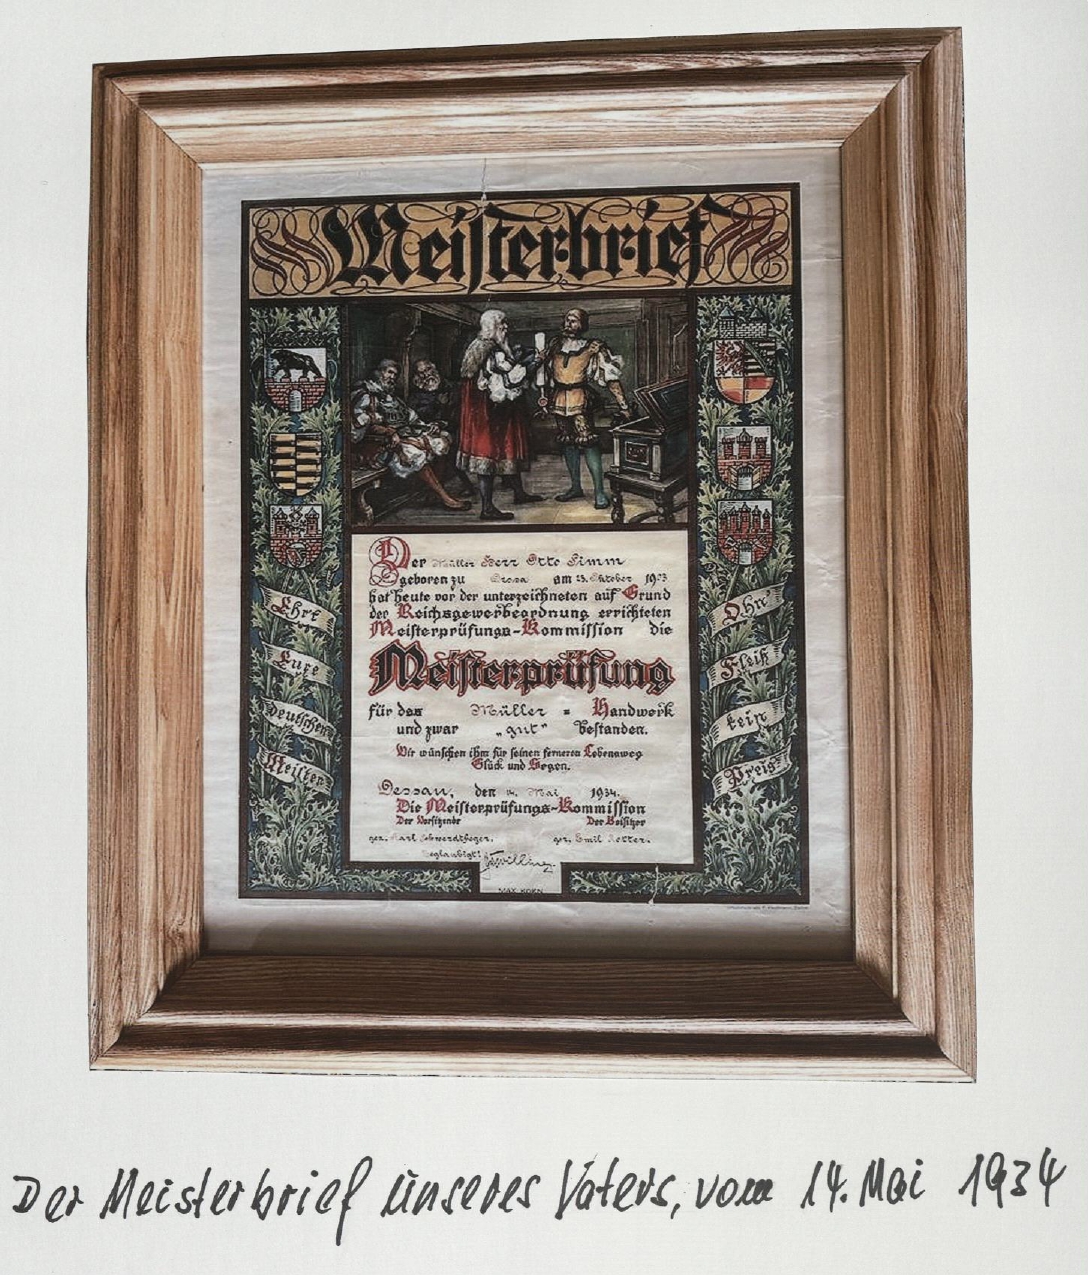 Meisterbrief
Der Müller Herr Otto Simm
geboren zu Drosa am 23. Oktober 1903
hat heute vor der unterzeichneten auf Grund
der Reichsgewerbeordnung errichteten
Meisterprüfungs-Kommission die
Meisterprüfung
für das Müller = Handwerk
und zwar „gut“ bestanden.
Wir wünschen ihm für seinen ferneren Lebensweg
Glück und Segen.
Dessau, den 14. Mai 1934.
Die Meisterprüfungs-Kommission
Der Vorsitzende Der Beisitzer
gez. Karl Schwerdtfeger. gez. Emil Rotter.
Beglaubigt:
MAX KORN
Ehrt
Eure
deutschen
Meister
Ohn'
Fleiß
kein
Preis
Der Meisterbrief unseres Vaters, vom 14. Mai 1934